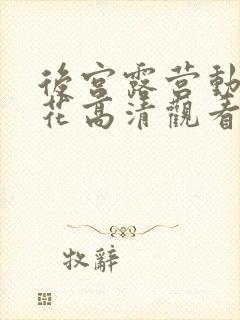 後宮露营動
花高清觀看
牧辭